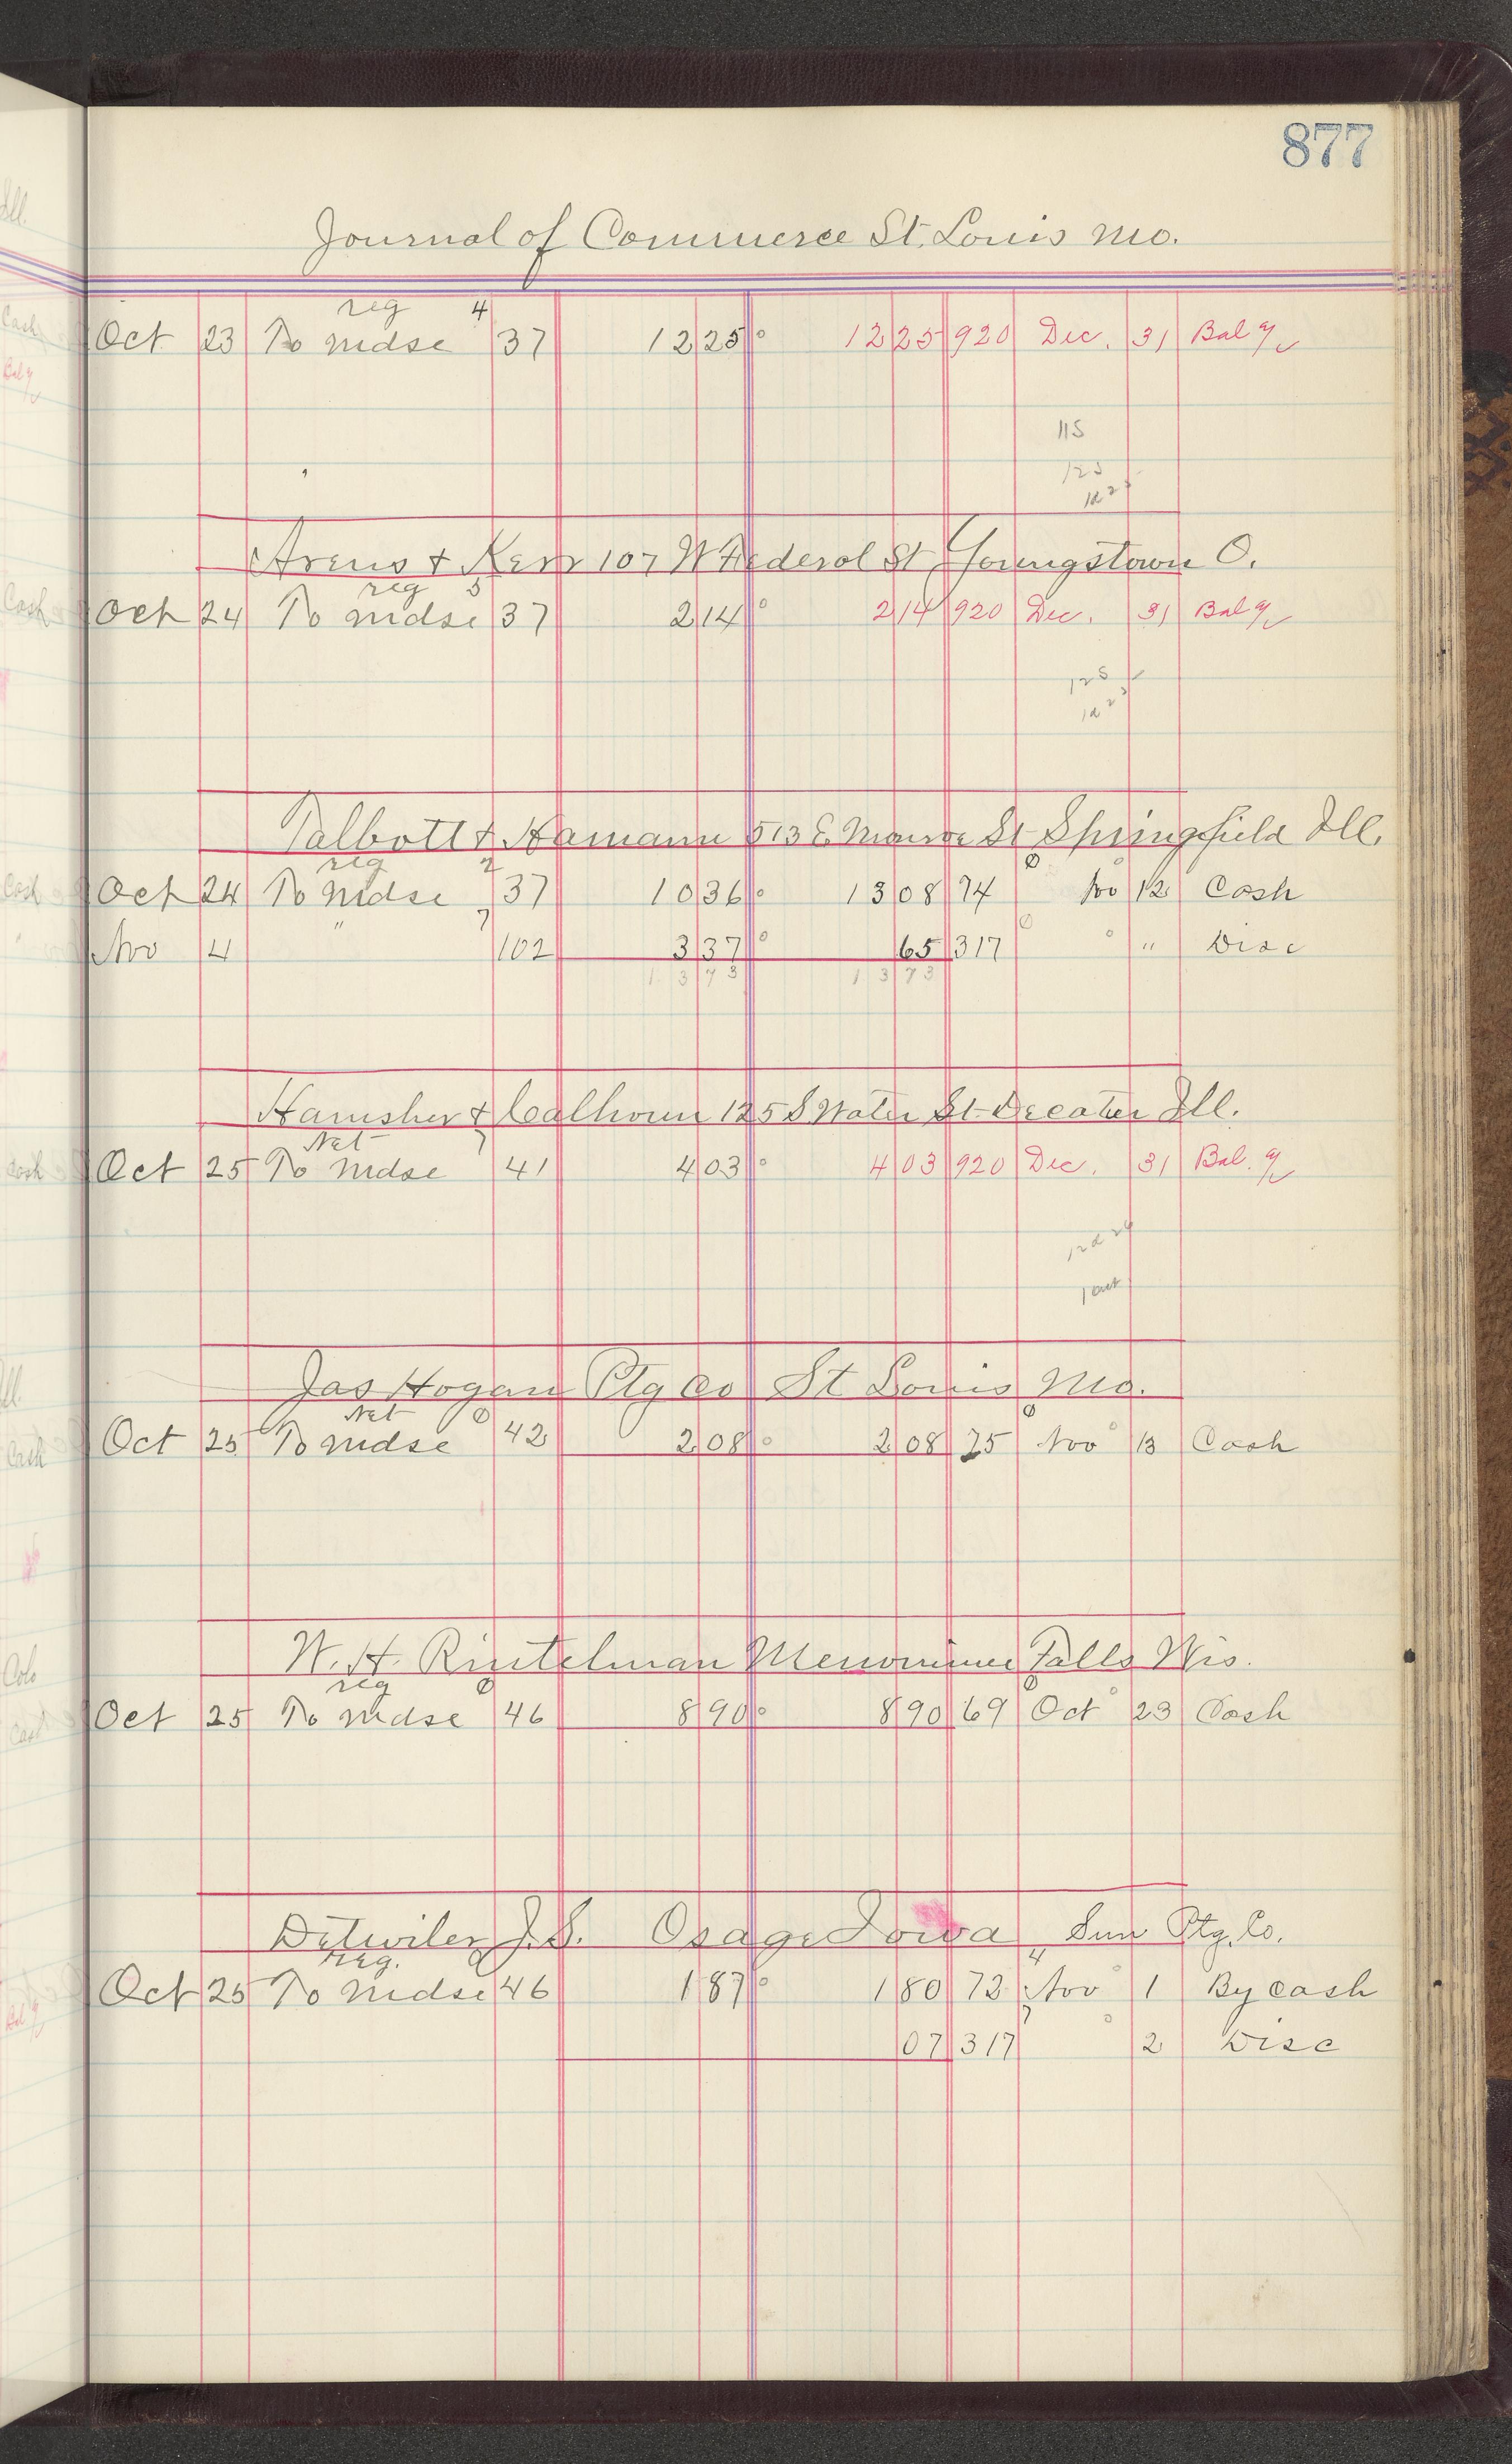 877
Journal of Commerce St. Louis Mo.
reg 4
Oct 23 To Mdse 37 12 25 ° 12 25 920 Dec. 31 Bal
115
125
Arens & Kerr 107 W Federal St Youngstown O.
reg 5
Oct 24 To Mdse 37 2 14 ° 2 14 920 Dec. 31 Bal
125
Talbott & Hamann 513 E Monroe St Springfield Ill.
reg 2 0
Oct 24 To Mdse 37 10 36 ° 13 08 74 Nov 12 Cash
7 0
Nov 4 " 102 3 37 ° 65 317 ° " Disc
1 3 73 1 3 73
Hamsher & Calhoun 125 S. Water St Decatur Ill.
Net 7
Oct 25 To Mdse 41 4 03 ° 4 03 920 Dec. 31 Bal.
Jas Hogan Ptg Co St Louis Mo.
Net 0 0
Oct 25 To Mdse 42 2 08 ° 2 08 75 Nov ° 13 Cash
W. H. Rintelman Menominee Falls Wis.
reg 0 0
Oct 25 To Mdse 46 8 90 ° 8 90 69 Oct ° 23 Cash
Detwiler J. S. Osage Iowa Sun Ptg. Co.
reg. 4
Oct 25 To Mdse 46 1 87 ° 1 80 72 Nov ° 1 By Cash
07 317 7 ° 2 Disc